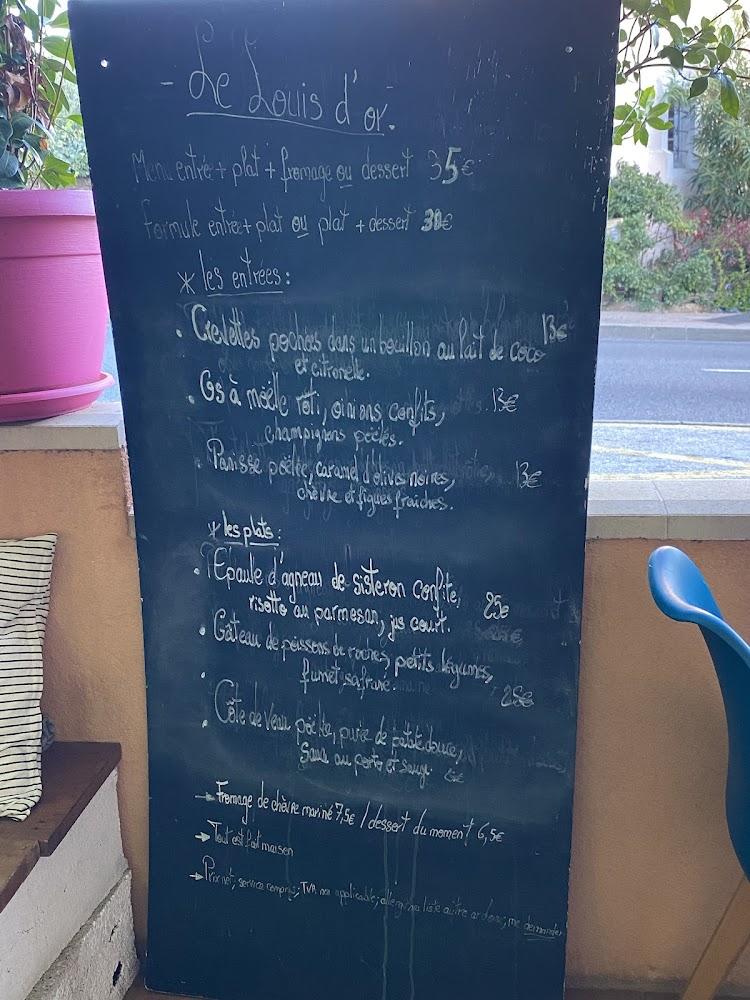 - Le Louis d'or.
Menu entrée + plat + fromage ou dessert 35€
Formule entrée + plat ou plat + dessert 30€
* les entrées :
. Crevettes pochées dans un bouillon au lait de coco 13€
et citronelle.
. Os à moëlle rôti, oinions confits, 13€
champignons poêlés.
. Panisse poêlée, caramel d'olives noires, 13€
chèvre et figues fraiches.
* les plats :
. l'Epaule d'agneau de sisteron confite, 25€
risotto au parmesan, jus court.
. Gâteau de poissons de roches, petits légumes,
fumet safrané. 25€
. Côte de Veau poêlée, purée de patate douce,
au porto et sauge.
→ Fromage de chèvre mariné 7,5€ / dessert du moment 6,5€
→ Tout est fait maison
→ Prix net, service compris; TVA non applicable; liste me demander